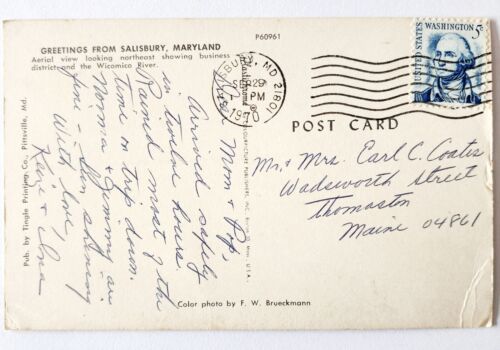 P60961
GREETINGS FROM SALISBURY, MARYLAND
Aerial view looking northeast showing business
district and the Wicomico River.
Mom & Pop,
Arrived safely
in twelve hours.
Rained most of the
time on trip down.
Norma & Jimmy are
fine - Sun shining
With love,
Pub. by Tingle Printing Co., Pittsville, Md.
Color photo by F. W. Brueckmann
SBURY, MD 21801
29
PM
1970
UNITED STATES
WASHINGTON 5c
POST CARD
Mr. & Mrs. Earl C. Coates
Wadsworth Street
Thomaston
Maine 04861